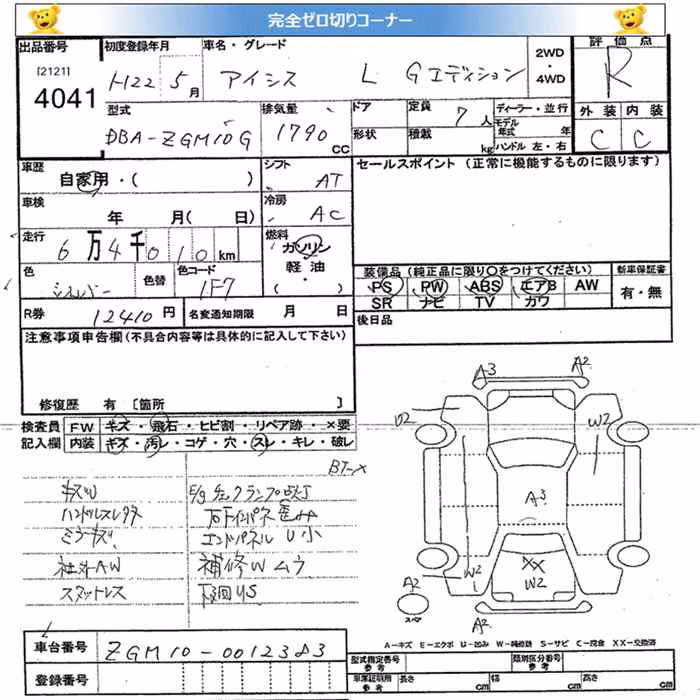 完全ゼロ切りコーナー
出品番号 初度登録年月 車名・グレード 2WD ・ 4WD 評価点
[2121] 4041 H22 5月 アイシス L Gエディション R
型式 排気量 ドア 定員 7人 ディーラー・並行 外装 内装
DBA-ZGM10G 1790 CC 形状 積載 kg モデル年式 年 ハンドル 左・右 C C
車歴 シフト セールスポイント (正常に機能するものに限ります)
自家用・( ) AT
車検 冷房
年 月( 日) AC
走行 燃料
6万4千010km ガソリン
色 色替 色コード 軽油 装備品 (純正品に限り○をつけてください) 新車保証書
シルバー 1F7 ・( ) PS PW ABS エアB AW 有・無
SR ナビ TV カワ
R券 12410円 名変通知期限 月 日 後日品
注意事項申告欄(不具合内容等は具体的に記入して下さい)
修復歴 有 [箇所 ]
検査員 FW キズ・飛石・ヒビ割・リペア跡・×要
記入欄 内装 キズ・汚レ・コゲ・穴・スレ・キレ・破レ
キズU E/gチェックランプ点灯
ハンドルスレ
ミラーキズ エンドパネルU小
社外AW 補修Wムラ
スタットレス 下回りS
A3 A2
U2 W2
A3
XX
W2 W2
A2 スペア
A2
A-キズ E-エクボ U-凹み W-補修跡 S-サビ C-腐食 XX-交換済
車台番号 ZGM10-0012383
登録番号
型式指定番号 参考 類別区分番号 参考
車庫証明用 参考 長さ cm 幅 cm 高さ cm